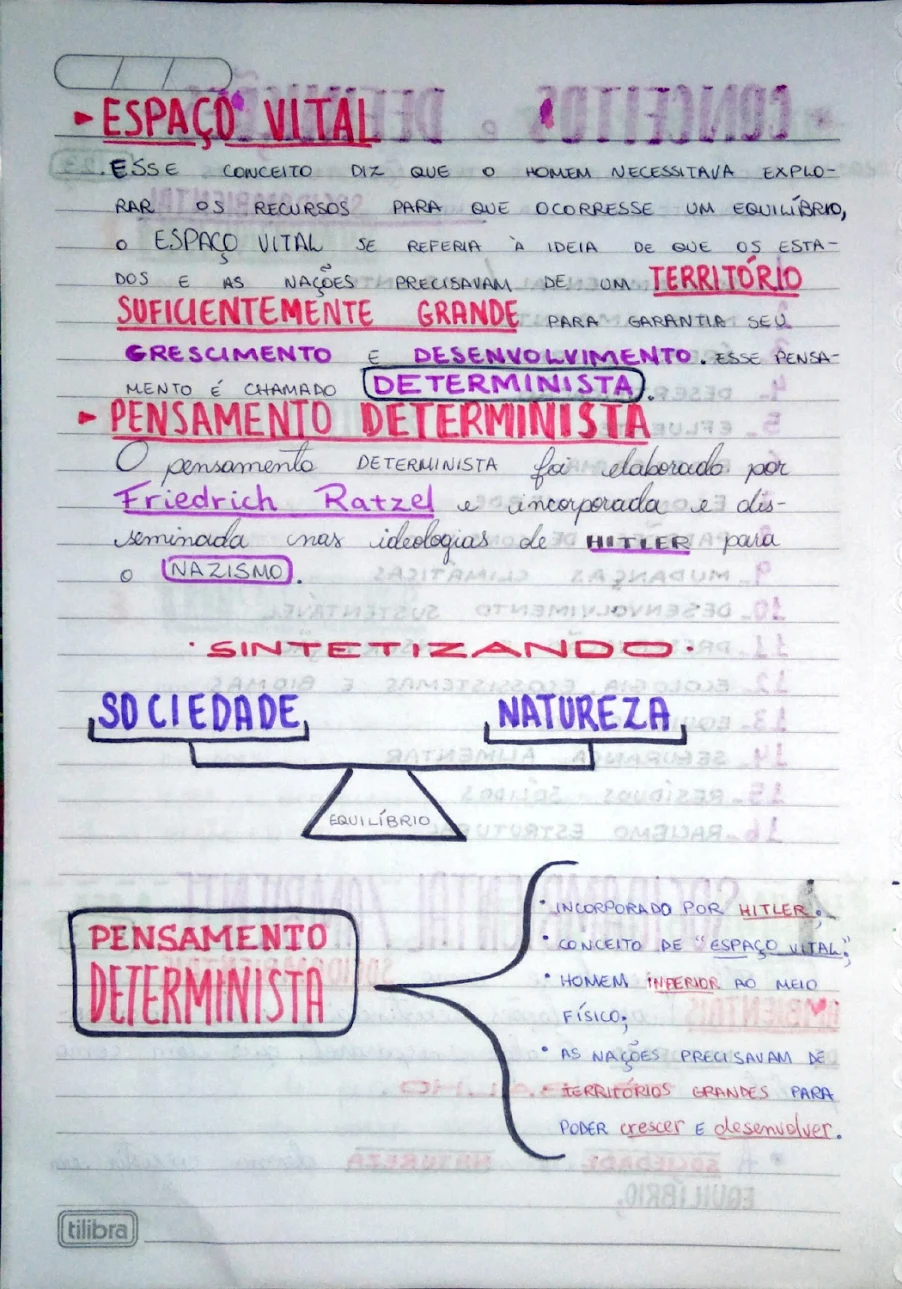 ► ESPAÇO VITAL
. ESSE CONCEITO DIZ QUE O HOMEM NECESSITAVA EXPLO-
RAR OS RECURSOS PARA QUE OCORRESSE UM EQUILÍBRIO,
O ESPAÇO VITAL SE REFERIA À IDEIA DE QUE OS ESTA-
DOS E AS NAÇÕES PRECISAVAM DE UM TERRITÓRIO
SUFICIENTEMENTE GRANDE PARA GARANTIA SEU
CRESCIMENTO E DESENVOLVIMENTO. ESSE PENSA-
MENTO É CHAMADO DETERMINISTA.
► PENSAMENTO DETERMINISTA
O pensamento DETERMINISTA foi elaborado por
Friedrich Ratzel e incorporada e dis-
seminada nas ideologias de HITLER para
o NAZISMO.
· SINTETIZANDO ·
SOCIEDADE NATUREZA
EQUILÍBRIO
PENSAMENTO
DETERMINISTA
• INCORPORADO POR HITLER;
• CONCEITO DE "ESPAÇO VITAL";
• HOMEM INFERIOR AO MEIO
FÍSICO;
• AS NAÇÕES PRECISAVAM DE
TERRITÓRIOS GRANDES PARA
PODER crescer E desenvolver.
tilibra